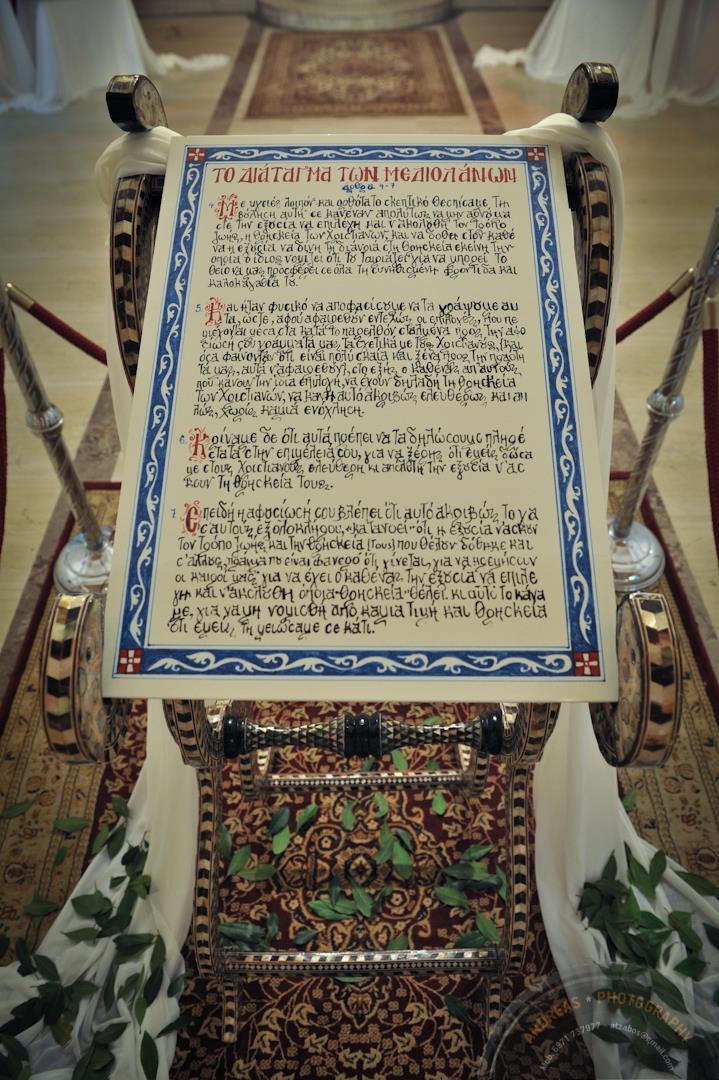 ΤΟ ΔΙΑΤΑΓΜΑ ΤΩΝ ΜΕΔΙΟΛΑΝΩΝ
άρθρα 4-7
4. Με υγιές λοιπόν και ορθότατο σκεπτικό θεσπίσαμε τη
βούληση αυτή: σε κανέναν απολύτως να μην αρνούμα
στε την εξουσία να επιλέγη και ν' ακολουθή τον τρόπο
ζωής, η θρησκεία των Χριστιανών, και να δοθεί στον καθέ
να η εξουσία να δίνη τη διάνοιά στη θρησκεία εκείνη την
οποία ο ίδιος νομίζει ότι του ταιριάζει, για να μπορεί το
θείο να μας προσφέρει σε όλα τη συνηθισμένη φροντίδα και
καλοκαγαθία του.
5. Και ήταν φυσικό να αποφασίσουμε να τα γράψουμε αυ
τά, ώστε, αφού αφαιρεθούν εντελώς οι επιλογές, που πε
ριέχονται μέσα στα κατά το παρελθόν σταλμένα προς την αφο
σίωσή σου γράμματά μας, τα σχετικά με τους Χριστιανούς, και
όσα φαίνονταν ότι είναι πολύ σκαιά και ξένα προς την πραότη
τά μας, αυτά ν' αφαιρεθούν, στο εξής ο καθένας απ' αυτούς
που κάνουν την ίδια επιλογή, να έχουν δηλαδή τη θρησκεία
των Χριστιανών, να κάνη αυτό ακριβώς ελεύθερως και απ
λώς, χωρίς καμιά ενόχληση.
6. Κρίναμε δε ότι αυτά πρέπει να τα δηλώσουμε πληρέ
στατα στην επιμέλειά σου, για να ξέρης ότι εμείς δώσα
με στους Χριστιανούς ελεύθερη κι απόλυτη την εξουσία ν' ασ
κούν τη θρησκεία τους.
7. Επειδή η αφοσίωσή σου βλέπει ότι αυτό ακριβώς το χα
σ' αυτούς εξ ολοκλήρου, κατανοεί ότι η εξουσία ν' ασκούν
τον τρόπο ζωής και την θρησκεία [τους] που θέλουν δόθηκε και
σ' άλλους, πράγμα που είναι φανερό ότι γίνεται, για να ηρεμήσουν
οι καιροί μας, για να έχει ο καθένας την εξουσία να επιλέ
γη και ν' ακολουθή όποια θρησκεία θέλει. κι αυτό το κάνα
με, για να μη νομισθή από καμιά τιμή και θρησκεία
ότι εμείς τη μειώσαμε σε κάτι.
ANDREAS * PHOTOGRAPHY